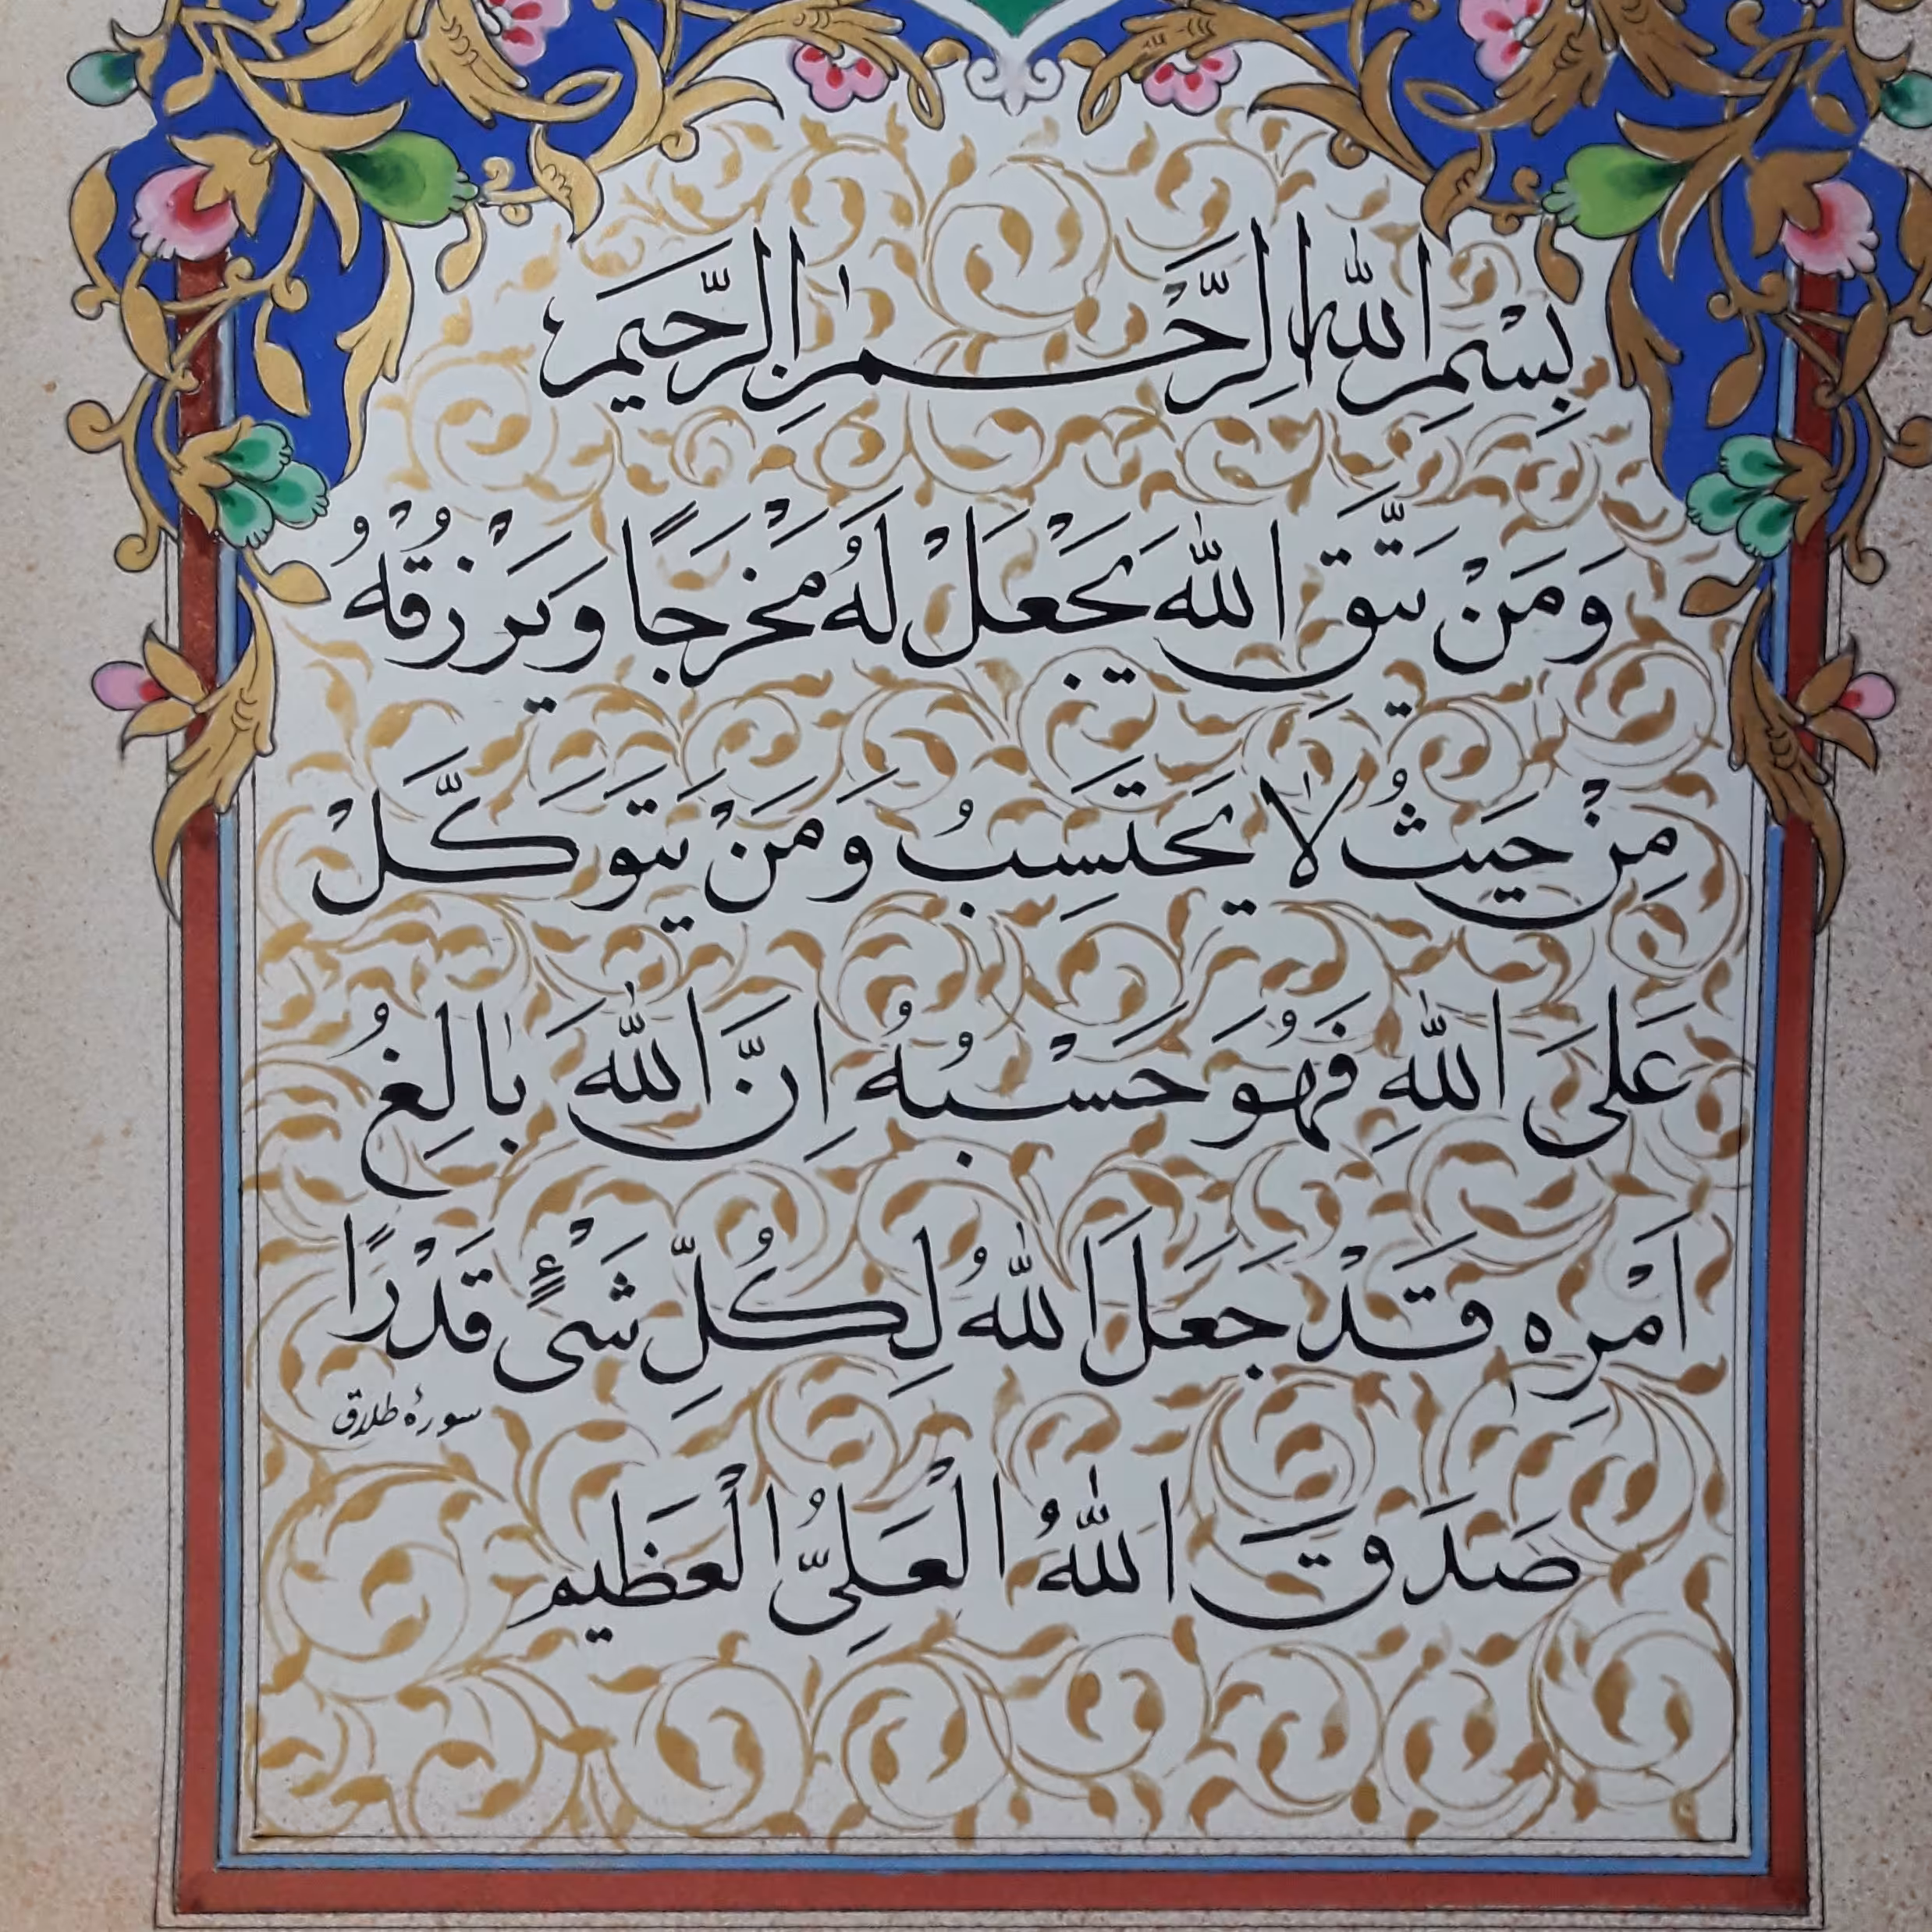 بِسْمِ اللهِ الرَّحْمٰنِ الرَّحیمِ
وَمَنْ یَتَّقِ اللهَ یَجْعَلْ لَهُ مَخْرَجًا وَیَرْزُقْهُ
مِنْ حَیْثُ لا یَحْتَسِبُ وَمَنْ یَتَوَکَّلْ
عَلَی اللهِ فَهُوَ حَسْبُهُ اِنَّ اللهَ بالِغُ
اَمْرِه قَدْ جَعَلَ اللهُ لِکُلِّ شَیْءٍ قَدْرًا
سورهٔ طلاق
صَدَقَ اللهُ الْعَلِیُّ الْعَظیم